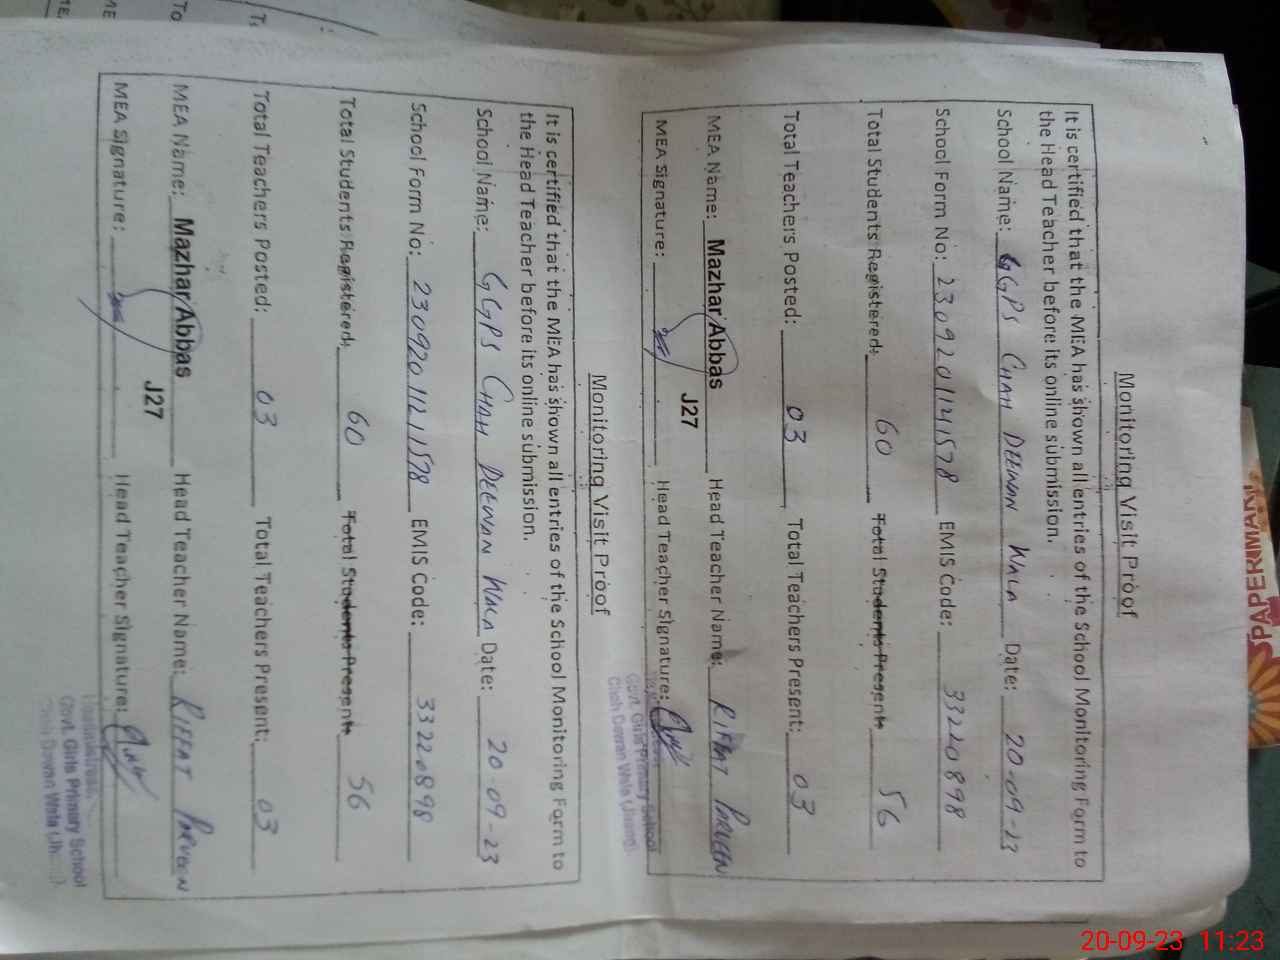 Monitoring Visit Proof
It is certified that the MEA has shown all entries of the School Monitoring Form to
the Head Teacher before its online submission.
School Name: GGPS CHAH DEEWAN WALA Date: 20-09-23
School Form No: 2309201121578 EMIS Code: 33220898
Total Students Registered: 60 Total Students Present 56
Total Teachers Posted: 03 Total Teachers Present: 03
MEA Name: Mazhar Abbas Head Teacher Name: RIFFAT PARVEEN
J27
MEA Signature: Head Teacher Signature:
Govt. Girls Primary School
Chah Dewan Wala (Jhang).
Monitoring Visit Proof
It is certified that the MEA has shown all entries of the School Monitoring Form to
the Head Teacher before its online submission.
School Name: GGPS CHAH DEEWAN WALA Date: 20-09-23
School Form No: 23092011211578 EMIS Code: 33220898
Total Students Registered: 60 Total Students Present 56
Total Teachers Posted: 03 Total Teachers Present: 03
MEA Name: Mazhar Abbas Head Teacher Name: RIFFAT PARVEEN
J27
MEA Signature: Head Teacher Signature:
Headmistress
Govt. Girls Primary School
Chah Dewan Wala
PAPERIMIANI
20-09-23 11:23